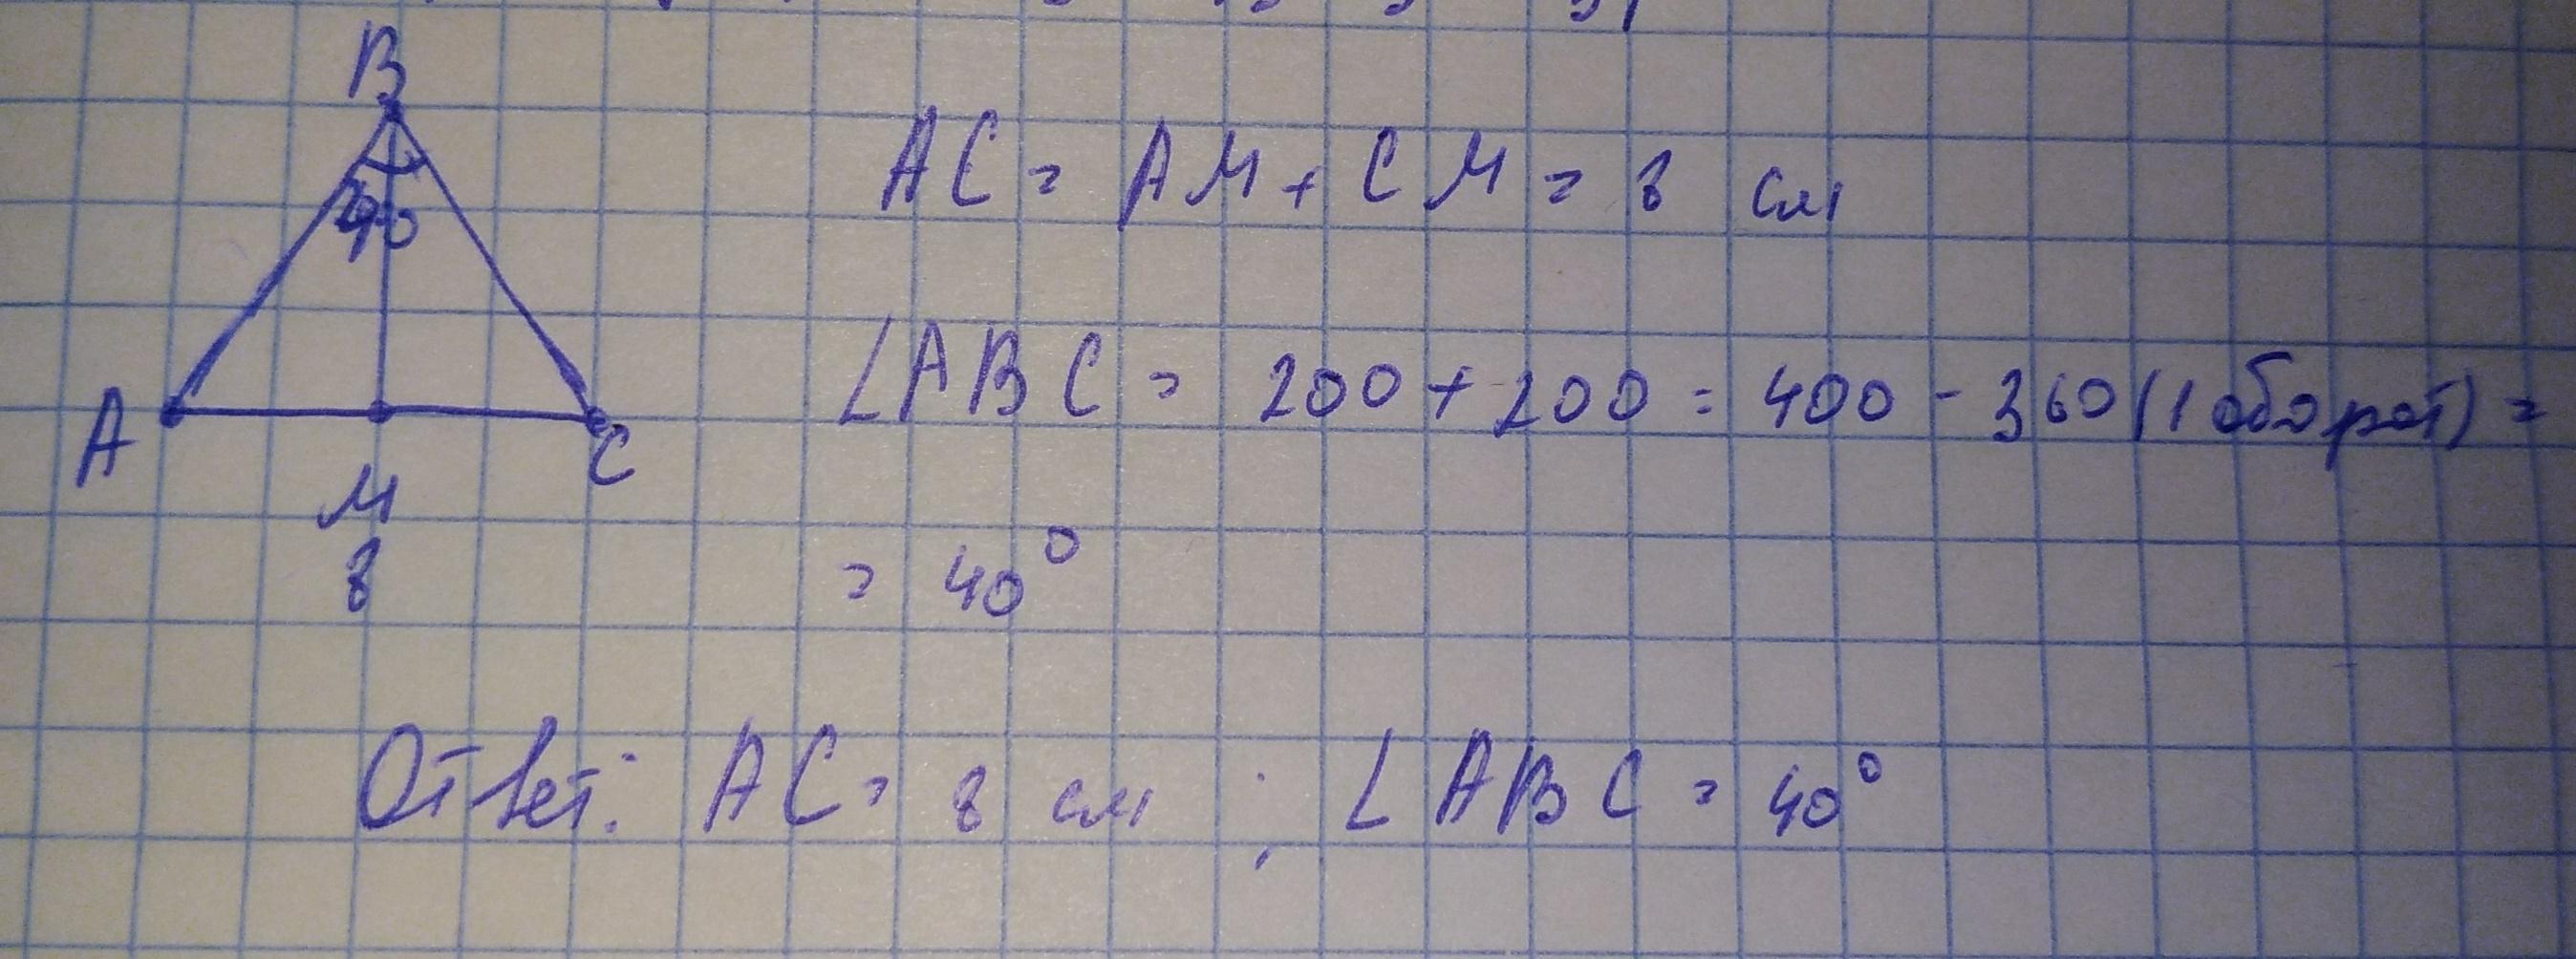 B
40
A
C
M
8
AC = AM + CM = 8 см
∠ABC = 200 + 200 = 400 - 360 (1 оборот) =
= 40°
Ответ: AC = 8 см ; ∠ABC = 40°